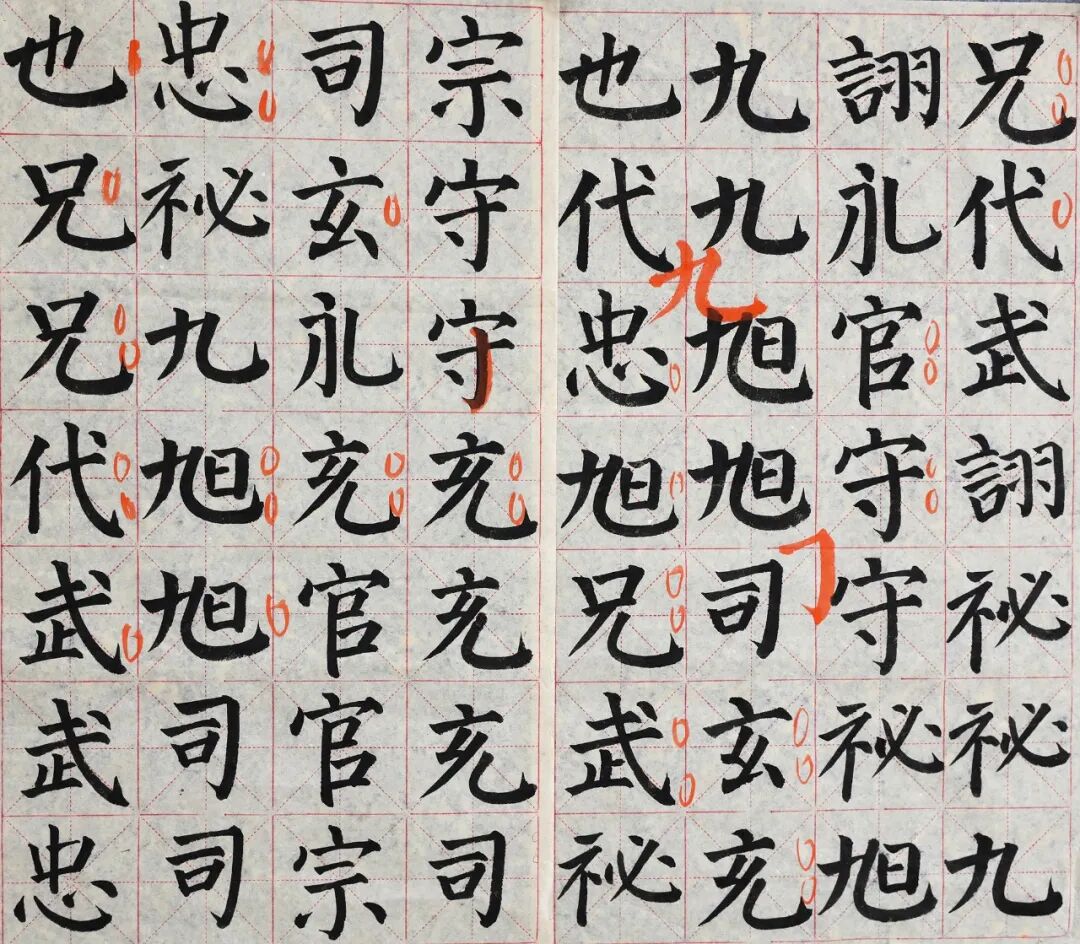 兄代武詡祕祕九
詡礼官守守祕旭
九九旭旭司玄充
九
也代忠旭兄武祕
宗守守充充充司
司玄礼充官官宗
忠祕九旭旭司司
也兄兄代武武忠